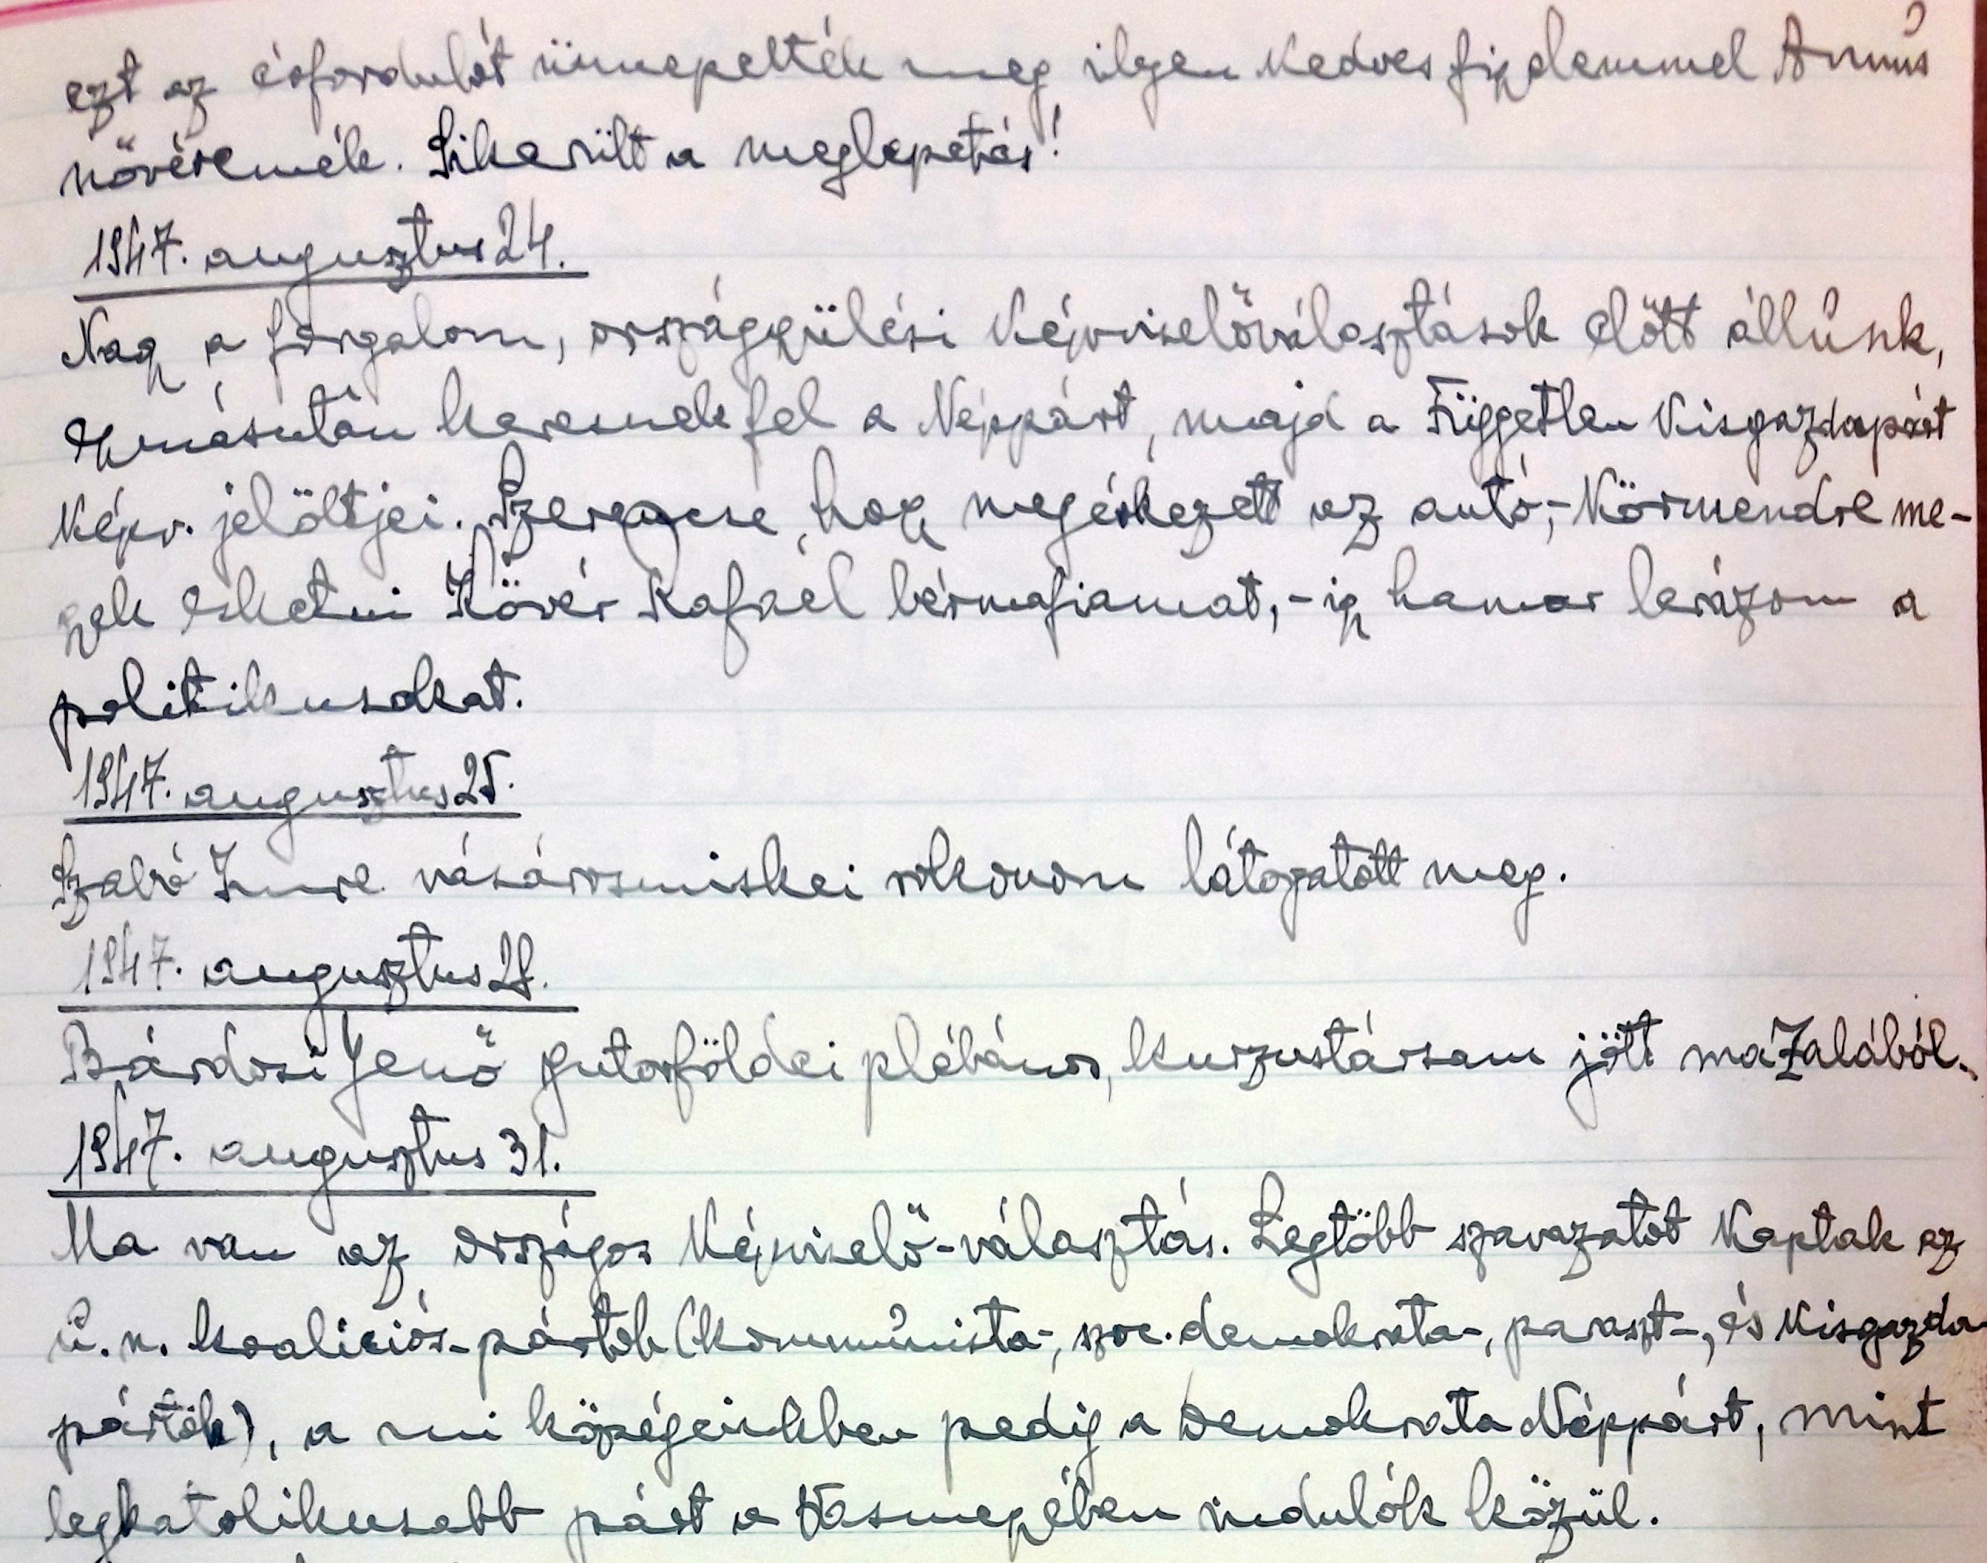 ezt az évfordulót ünnepelték meg ilyen kedves figyelemmel Annus
nővéremék. Sikerült a meglepetés!
1947. augusztus 24.
Nagy a forgalom, országgyülési képviselőválasztások előtt állunk,
Egymásután keresnek fel a Néppárt, majd a Független Kisgazdapárt
képv. jelöltjei. Szerencse, hogy megérkezett az autó,- Körmendre me-
gyek esketni Kövér Rafael bérmafiamat,- igy hamar lerázom a
politikusokat.
1947. augusztus 25.
Szabó Imre vásárosmiskei rokonom látogatott meg.
1947. augusztus 28.
Bárdosi Jenő gutorföldei plébános, kurzustársam jött ma Zalából.
1947. augusztus 31.
Ma van az országos képviselő-választás. Legtöbb szavazatot kaptak az
ú.n. koaliciós-pártok (kommúnista-, szoc. demokrata-, paraszt-, és kisgazda-
pártok), a mi községeinkben pedig a Demokrata Néppárt, mint
legkatolikusabb párt a Vasmegyében indulók közül.